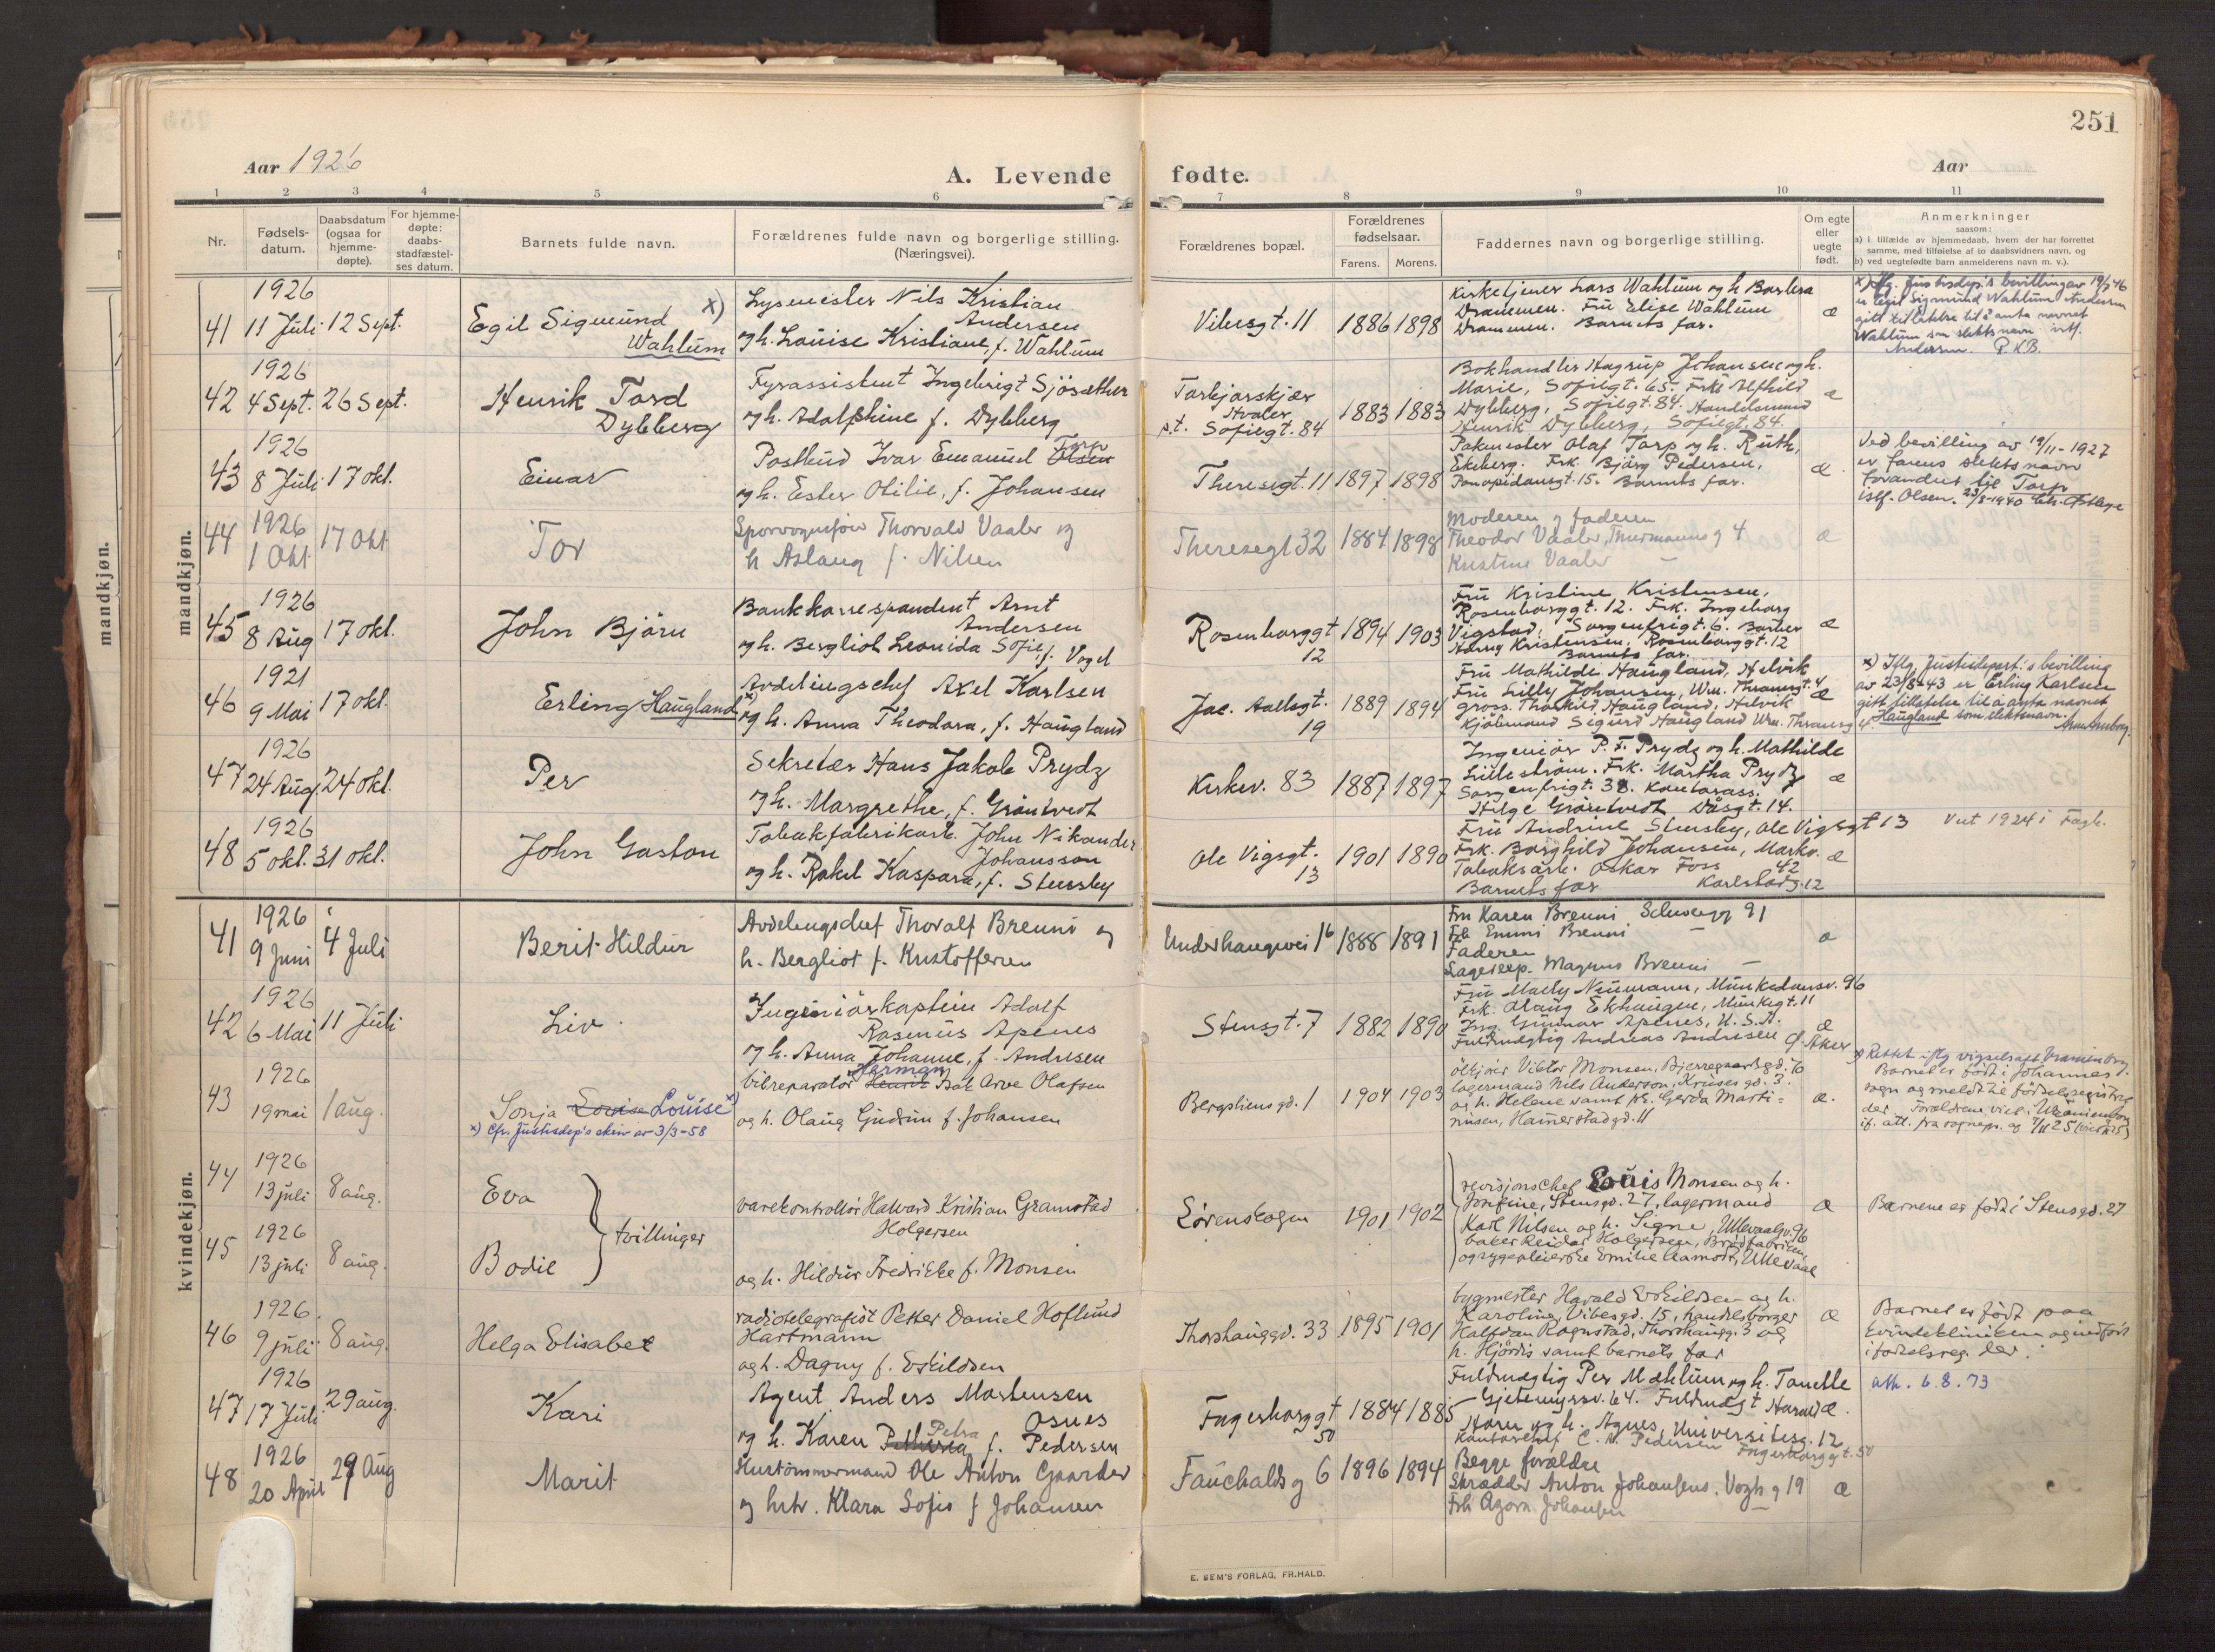 251
Aar 1926
A. Levende fødte.
Aar
1 2 3 4 5 6 7 8 9 10 11
Nr.
Fødsels-
datum.
Daabsdatum
(ogsaa for
hjemme-
døpte).
For hjemme-
døpte:
daabs-
stadfæstel-
ses datum.
Barnets fulde navn.
Forældrenes fulde navn og borgerlige stilling.
(Næringsvei).
Forældrenes bopæl.
Forældrenes
fødselsaar.
Farens. Morens.
Faddernes navn og borgerlige stilling.
Om egte
eller
uegte
født.
Anmerkninger
saasom:
a) i tilfælde av hjemmedaab, hvem der har forrettet
samme, med tilføielse af to daabsvidners navn, og
b) ved uegtefødte barn anmelderens navn m. v.).
mandkjøn.
mandkjøn.
41
1926
11 Juli
12 Sept.
Egil Sigmund x)
Wahlum
Lysmester Nils Kristian
Andersen
og h. Louise Kristiane, f. Wahlum
Vibesgt. 11
1886 1898
Kirketjener Lars Wahlum og h. Barbra
Drammen. Fru Elise Wahlum
Drammen. Barnets far.
æ
x) Iflg. Justisdep.'s bevilling av 19/7 46
er Egil Sigmund Wahlum Andersen
gitt tillatelse til å anta navnet
Wahlum som slektsnavn istf.
Andersen. P.K.B.
42
1926
4 Sept.
26 Sept.
Henrik Tord
Dybberg
Fyrassistent Ingebrigt Sjösæther
og h. Adolphine f. Dybberg
Torbjørskjær
Hvaler
p.t. Sofiegt. 84
1883 1883
Bokhandler Hagrup Johansen og h.
Marie, Sofiegt. 65. Frk. Alfhild
Dybberg, Sofiegt. 84. Handelsmand
Henrik Dybberg, Sofiegt. 84.
æ
43
1926
8 Juli
17 Okt.
Einar
Postbud Ivar Emanuel Olsen Torp
og h. Ester Otilie, f. Johansen
Theresegt. 11
1897 1898
Pakmester Olaf Torp og h. Ruth,
Ekeberg. Frk. Bjørg Pedersen,
15. Barnets far.
æ
Ved bevilling av 19/11-1927
er farens slektsnavn
forandret til Torp
istf. Olsen. 23/8-1940
44
1926
1 Okt
17 Okt
Tor
Sporvognsfører Thorvald Vaaler og
h Aslaug f. Nilsen
Theresegt 32
1884 1898
Moderen og faderen
Theodor Vaaler, Thurmanns g 4
Kristine Vaaler —
æ
45
1926
8 Aug
17 Okt.
John Bjørn
Bankkorrespondent Arnt
Andersen
og h. Bergliot Leonida Sofie, f. Vogel
Rosenborggt
12
1894 1903
Fru Kristine Kristensen,
Rosenborggt. 12. Frk. Ingeborg
Vigstad, Sorgenfrigt. 6. Barber
Harry Kristensen, Rosenborggt. 12
Barnets far.
æ
46
1921
9 Mai
17 Okt.
Erling Haugland x)
Avdelingschef Axel Karlsen
og h. Anna Theodora, f. Haugland
Jac. Aallsgt.
19
1889 1894
Fru Mathilde Haugland, Helvik
Fru Lilly Johansen, Wm. Thranesgt. 4
gross. Thorkild Haugland, Helvik
Kjøbmand Sigurd Haugland Wm. Thranesg 4
æ
x) Iflg. Justisdepart.'s bevilling
av 23/8-43 er Erling Karlsen
gitt tillatelse til å anta navnet
Haugland som slektsnavn.
47
1926
24 Aug.
24 Okt.
Per
Sekretær Hans Jakob Prydz
og h. Margrethe, f. Gröntvedt
Kirkev. 83
1887 1897
Ingeniör P. F. Prydz og h. Mathilde
Lilleström. Frk. Martha Prydz
Sorgenfrigt. 38. Kontorass.
Helge Gröntvedt Daasgt. 14.
æ
48
1926
5 Okt.
31 Okt.
John Gaston
Tobakfabrikarb. John Nikander
Johansson
og h. Rakel Kaspara, f. Stensby
Ole Vigsgt.
13
1901 1890
Fru Andrine Stensby, Ole Vigsgt 13
Frk. Borghild Johansen, Markv.
42
Tobaksarb. Oskar Foss
Karlstadg. 12
Barnets far
æ
Viet 1924 i Fagb.
kvindekjøn.
41
1926
9 Juni
4 Juli
Berit Hildur
Avdelingschef Thoralf Brenni og
h. Bergliot f. Kristoffersen
Underhaugsvei 16
1888 1891
Fru Karen Brenni Schwensg 91
Frk Emmi Brenni —
Faderen
Lagerexp. Magnus Brenni —
æ
42
1926
6 Mai
11 Juli
Liv
Ingeniörkaptein Adolf
Rasmus Apenes
og h. Anna Johanne, f. Andresen
Stensgt. 7
1882 1890
Fru Mally Neumann, Munkedamsv. 96
Frk. Olaug Ekhaugen, Munkegt. 11
Ing. Gunnar Apenes, U.S.A.
Fuldmægtig Andreas Andresen Ø. Aker
æ
43
1926
19 mai
1 aug.
Sonja Lovise Louise x)
x) Cfr. Justisdep's skriv av 3/3-58
bilreparatør Henrik Herman Isak Arve Olafsen
og h. Olaug Gudrun f. Johansen
Bergsliensgd. 1
1904 1903
ölkjører Viktor Monsen, Bjerregaardsgd. 70
lagermand Nils Anderson, Krusesgd. 3.
og h. Helene samt frk. Gerda Marti=
nusen, Hamerstadgd. 11
æ.
x) Rettet iflg vigselsatt Uranienborg.
Barnet er født i Johannes
sogn og meldt til födselsregistret
der. Forældrene viet i Uranienborg
if. att. fra sognepr. ag 7/11 25
44
1926
13 juli
8 aug.
Eva
45
1926
13 juli
8 aug.
Bodil
tvillinger
varekontrollör Halvard Kristian Gramstad
Holgersen
og h. Hildur Fredrikke f. Monsen
Lørenskogen
1901 1902
revisjonschef Louis Monsen og h.
Josefine, Stensgd. 27, lagermand
Karl Nilsen og h. Signe, Ullevaalsv. 96
baker Reidar Holgersen, Brødfabriken,
og sygepleierske Emilie Aamodt, Ullevaal
æ
Barnene er født i Stensgd. 27
46
1926.
9 juli
8 aug.
Helga Elisabet
radiotelegrafist Petter Daniel Hoflund
Hartmann
og h. Dagny f. Eskildsen
Thorshauggd. 33
1895 1901
bygmester Harald Eskildsen og h.
Karoline, Vibesgd. 15, handelsborger
Halfdan Rognstad, Thorshaugg. 3 og
h. Hjördis samt barnets far
æ
Barnet er født paa
kvindekliniken og indført
i födselsreg. der.
47
1926
17 Juli
29 aug.
Kari
Agent Anders Mortensen
Osnes
og h. Karen Petra f. Pedersen
Fagerborggt
50
1884 1885
Fuldmægtig Per Mæhlum og h. Tonette
Gjetemyrsv. 64. Fuldmægt Harald
Horn og h. Agnes, Universitetsg. 12
Kontorchef C. A. Pedersen Fagerborggt. 50
æ.
att. 6.8.73
48
1926
20 April
29 Aug
Marit
Hustömmermand Ole Anton Gaarder
og hstr. Klara Sofie f Johansen
Fauchalds g 6
1896 1894
Begge forældre
Skrædder Anton Johansen. Vogts g 19
Frk Agora Johansen —
æ
E. SEM'S FORLAG, FR.HALD.